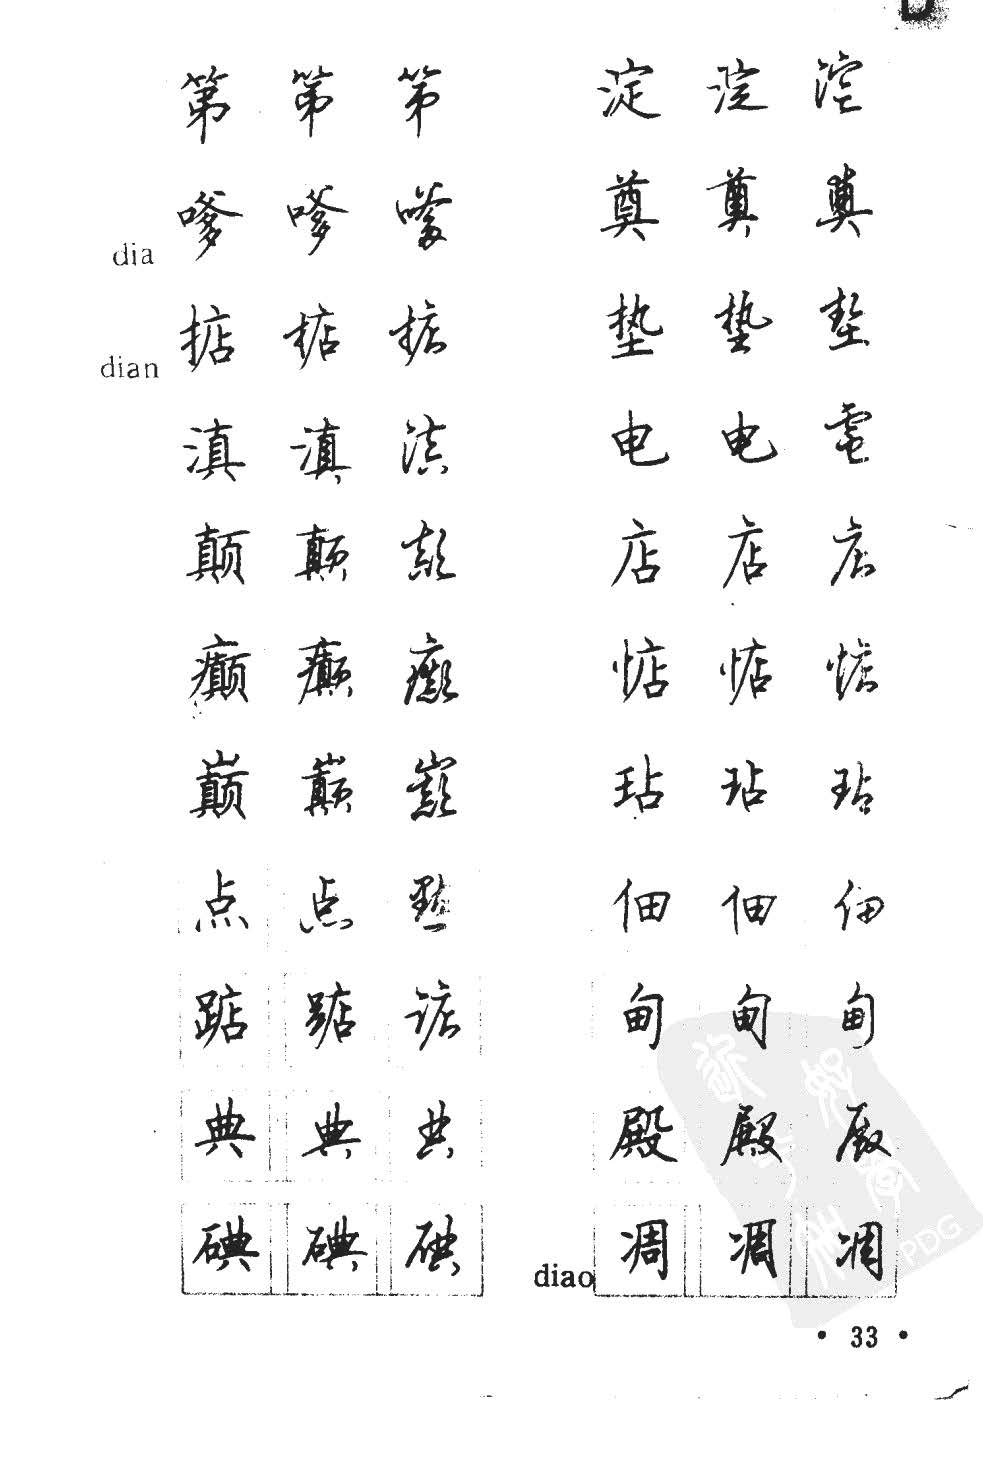 D
第 第 第
dia 嗲 嗲 嗲
dian 掂 掂 掂
滇 滇 滇
颠 颠 颠
癫 癫 癫
巅 巅 巅
点 点 點
踮 踮 踮
典 典 典
碘 碘 碘
淀 淀 淀
奠 奠 奠
垫 垫 垫
电 电 電
店 店 店
惦 惦 惦
玷 玷 玷
佃 佃 佃
甸 甸 甸
殿 殿 殿
diao 凋 凋 凋
PDG
• 33 •